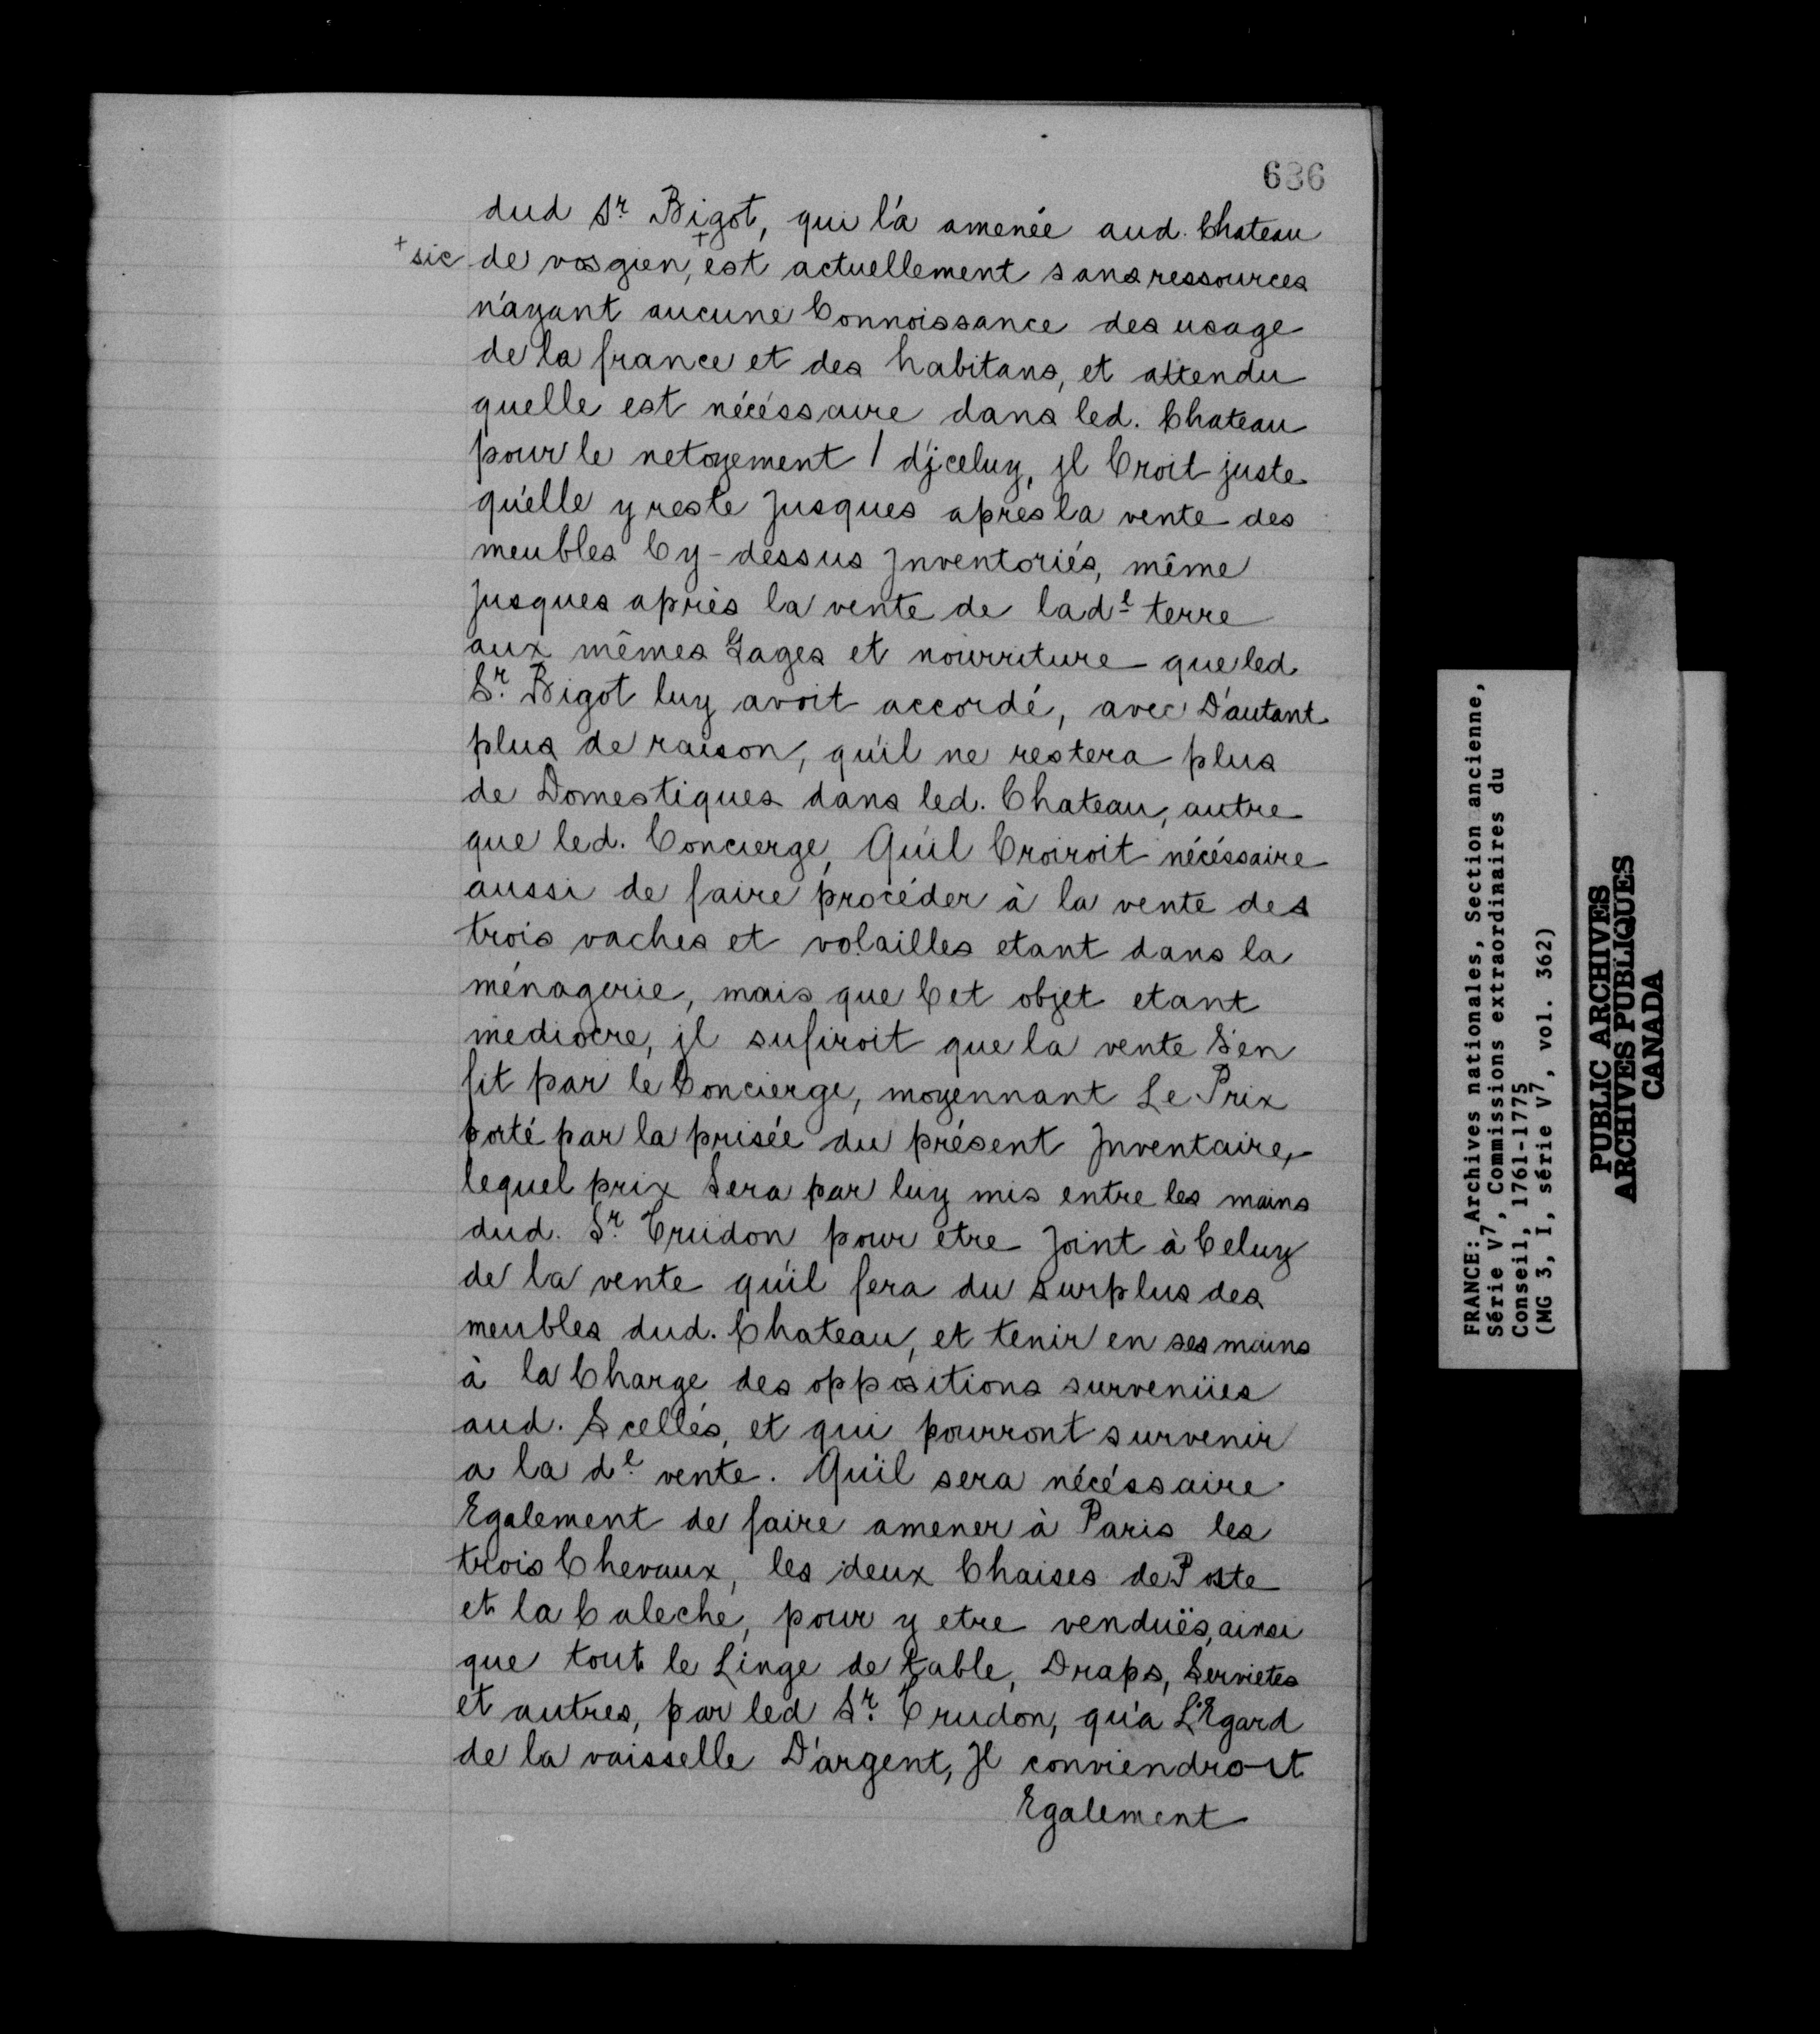 636
dud Sr. Bigot, qui l'a amenée aud. Chateau
+ sic de vosgien,+ est actuellement sans ressources
n'ayant aucune Connoissance des usage
de la france et des habitans, et attendu
quelle est nécéssaire dans led. Chateau
pour le netoyement / d'jceluy, jl Croit juste
qu'elle y reste Jusques apres la vente des
meubles Cy-dessus Jnventoriés, même
Jusques après la vente de lade. terre
aux mêmes Gages et nourriture que led.
Sr. Bigot luy avoit accordé, avec D'autant
plus de raison, qu'il ne restera plus
de Domestiques dans led. Chateau, autre
que led. Concierge, Qu'il Croiroit nécéssaire
aussi de faire procéder à la vente des
trois vaches et volailles etant dans la
ménagerie, mais que Cet objet etant
mediocre, jl sufiroit que la vente s'en
fit par le Concierge, moyennant Le Prix
porté par la prisée du présent Jnventaire,
lequel prix Sera par luy mis entre les mains
dud. Sr. Trudon pour etre Joint à Celuy
de la vente qu'il fera du surplus des
meubles dud. Chateau, et tenir en ses mains
à la Charge des oppositions survenües
aud. Scellés, et qui pourront survenir
a la de. vente. Qu'il sera nécéssaire
Egalement de faire amener à Paris les
trois Chevaux, les deux Chaises de Poste
et la Caleche, pour y etre venduës, ainsi
que tout le Linge de table, Draps, Servietes
et autres, par led Sr. Trudon, qu'a L'Egard
de la vaisselle D'argent, Jl conviendroit
Egalement
FRANCE: Archives nationales, Section ancienne,
Série V7, Commissions extraordinaires du
Conseil, 1761-1775
(MG 3, I, série V7, vol. 362)
PUBLIC ARCHIVES
ARCHIVES PUBLIQUES
CANADA